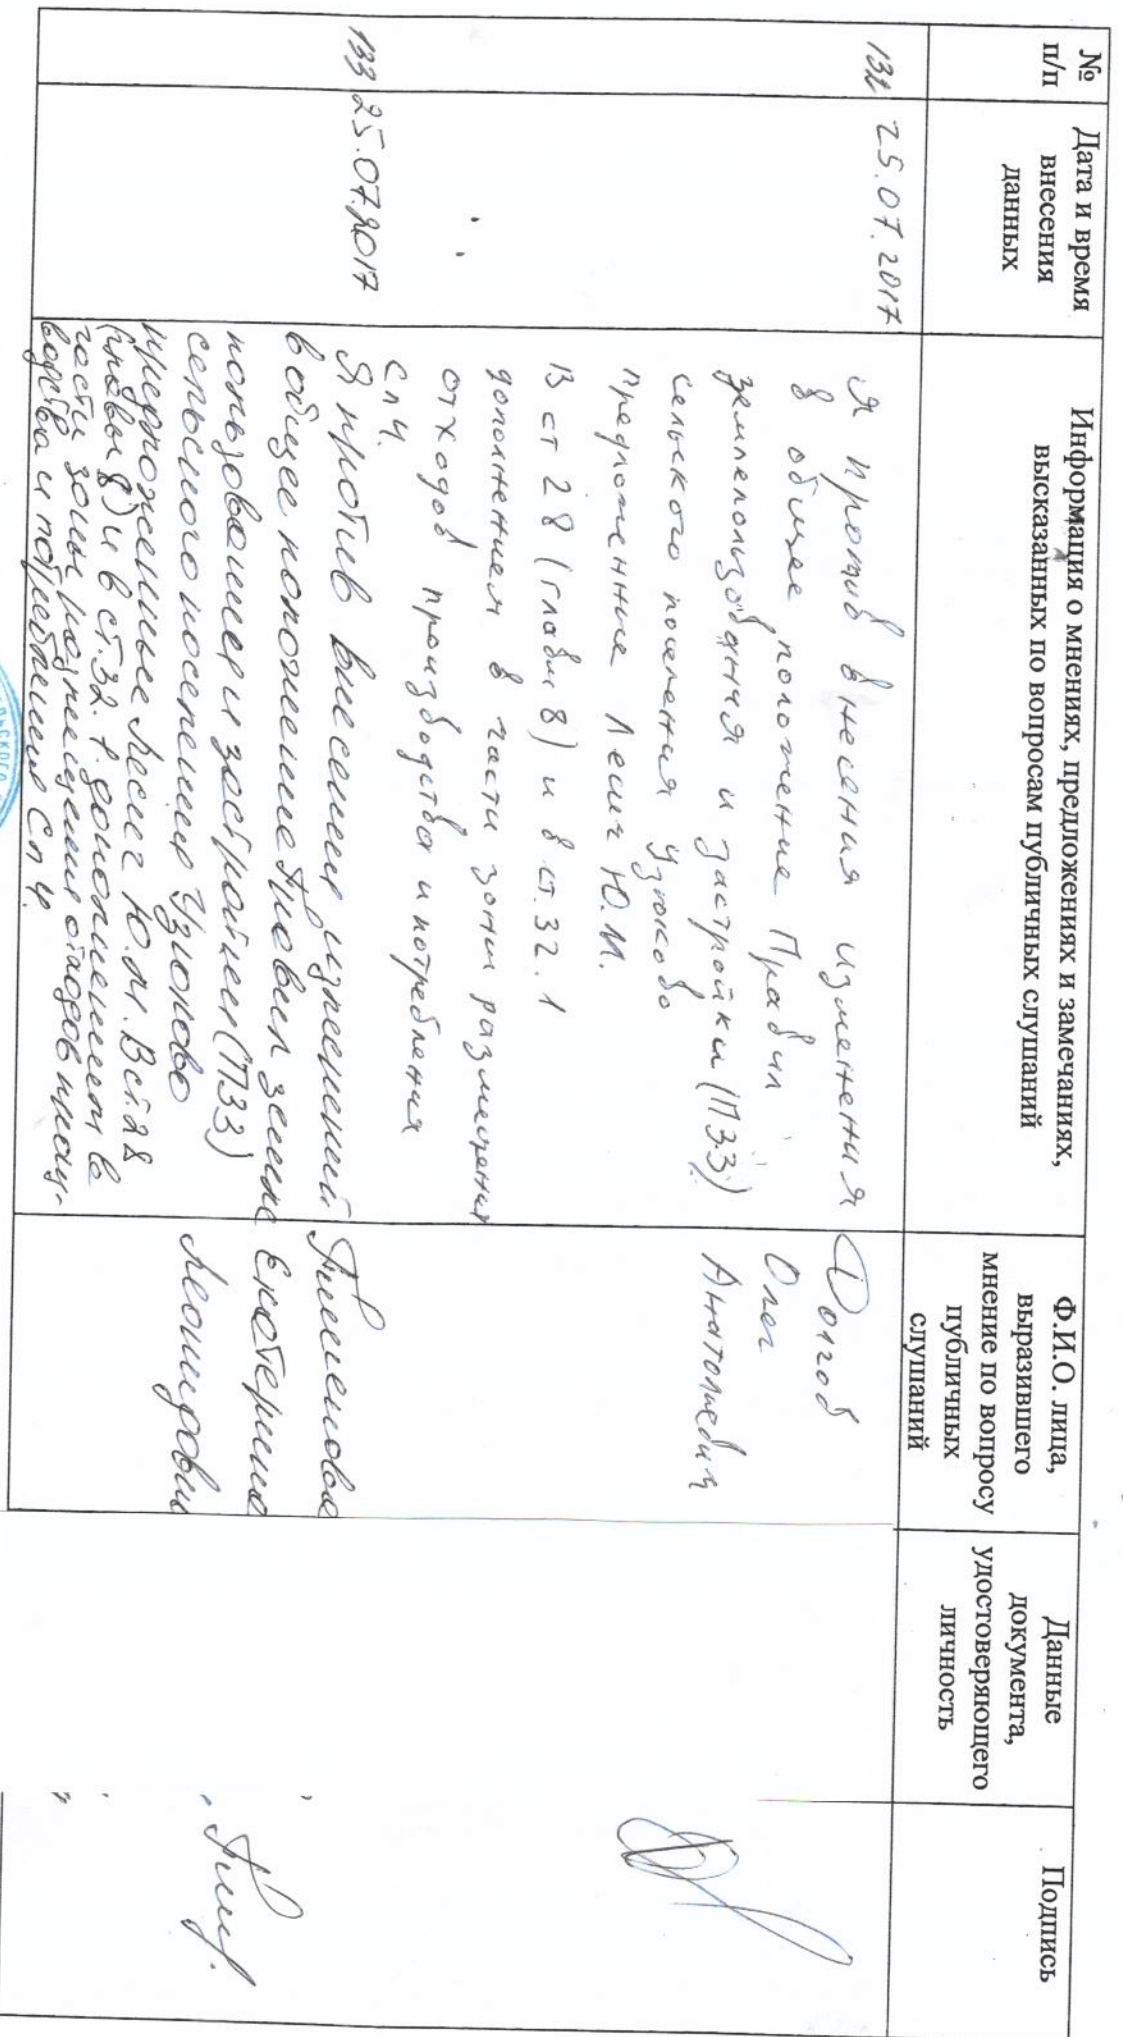 №
п/п
Дата и время
внесения
данных
Информация о мнениях, предложениях и замечаниях,
высказанных по вопросам публичных слушаний
Ф.И.О. лица,
выразившего
мнение по вопросу
публичных
слушаний
Данные
документа,
удостоверяющего
личность
Подпись
132
25.07.2017
Я против внесения изменения
в общее положение Правил
землепользования и застройки (ПЗЗ)
сельского поселения Узюково
предложенние Лешич Ю.М.
В ст 28 (главы 8) и в ст. 32.1
дополнением в части зоны размещения
отходов производства и потребления
Сп 4.
Долгов
Олег
Анатольевич
133
25.07.2017
Я против внесения изменений
в общее положение Правил земле
пользования и застройки (ПЗЗ)
сельского поселения Узюково
предложенные Ю.М. В ст. 28
(главы 8) и в ст. 32.1. дополнением в
части зоны размещения отходов произ-
водства и потребления Сп 4.
Екатерина